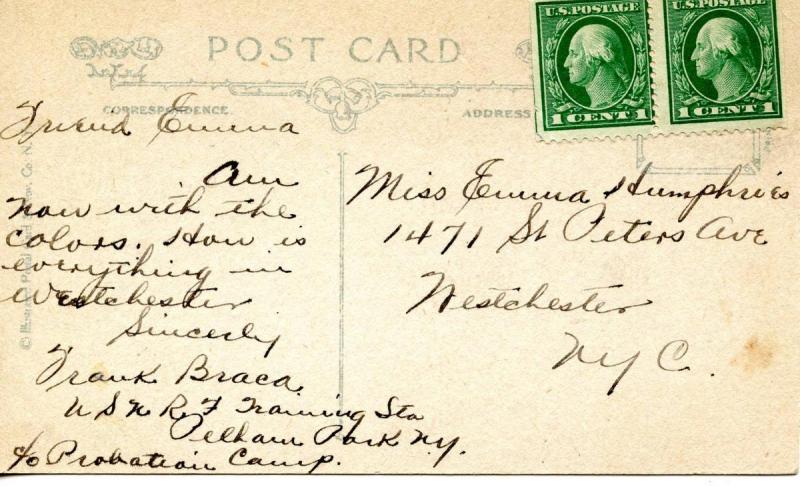 U.S. POSTAGE
U.S. POSTAGE
1 CENT 1
1 CENT 1
POST CARD
CORRESPONDENCE
ADDRESS
Friend Emma
Am
now with the
colors. How is
everything in
Westchester
Sincerly
Frank Braca
U S N R F Training Sta
Pelham Park NY.
c/o Probation Camp.
Miss Emma Humphries
1471 St Peters Ave
Westchester
N Y C.